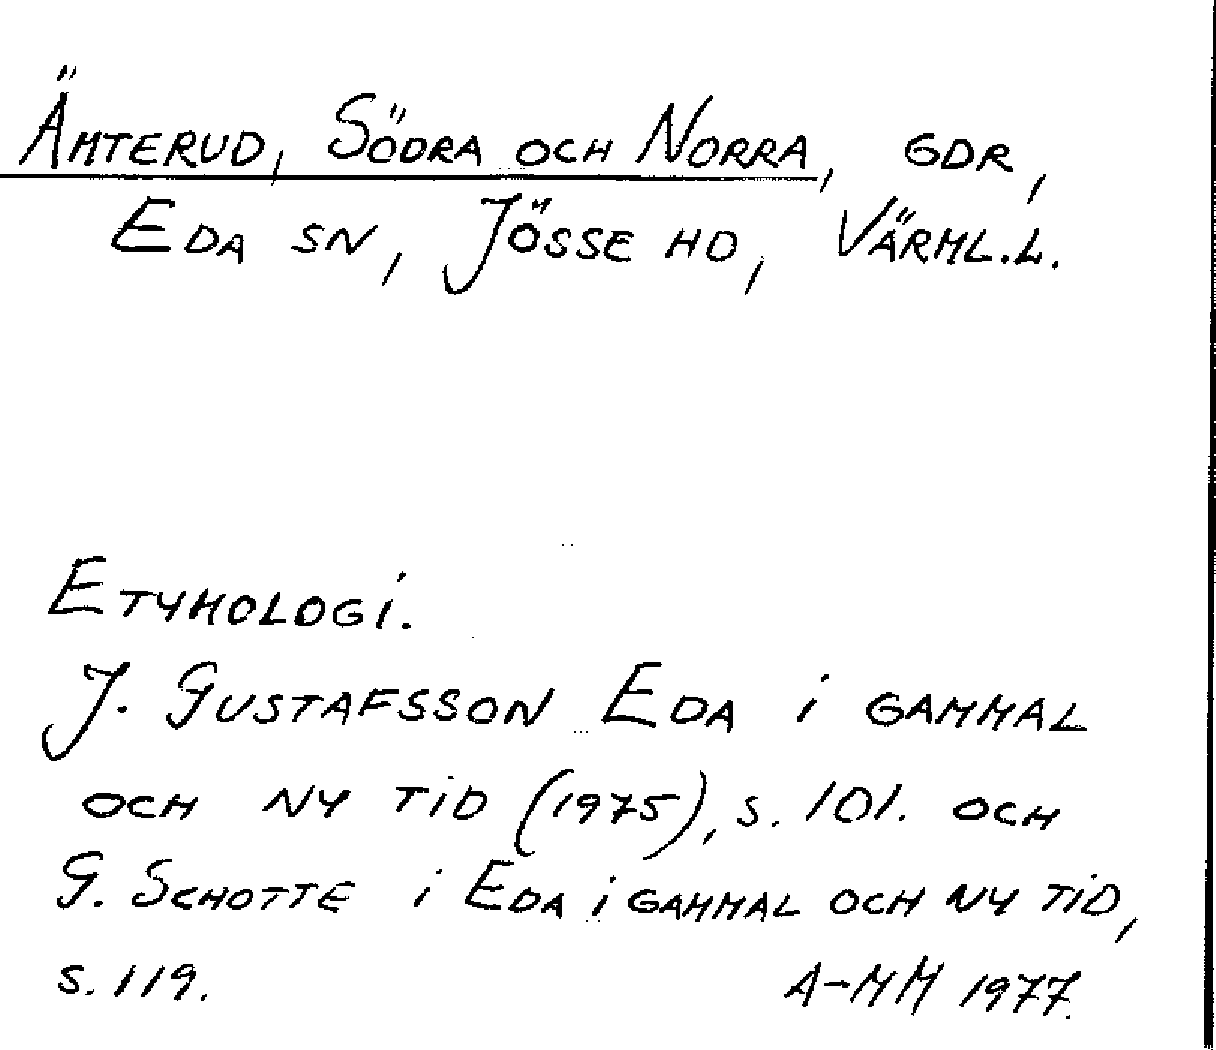 Ämterud, Södra och Norra, gdr,
Eda sn, Jösse hd, Värml.l.
Etymologi.
J. Gustafsson Eda i gammal
och ny tid (1975), s. 101. och
G. Schotte i Eda i gammal och ny tid,
s. 119. A-MM 1977.